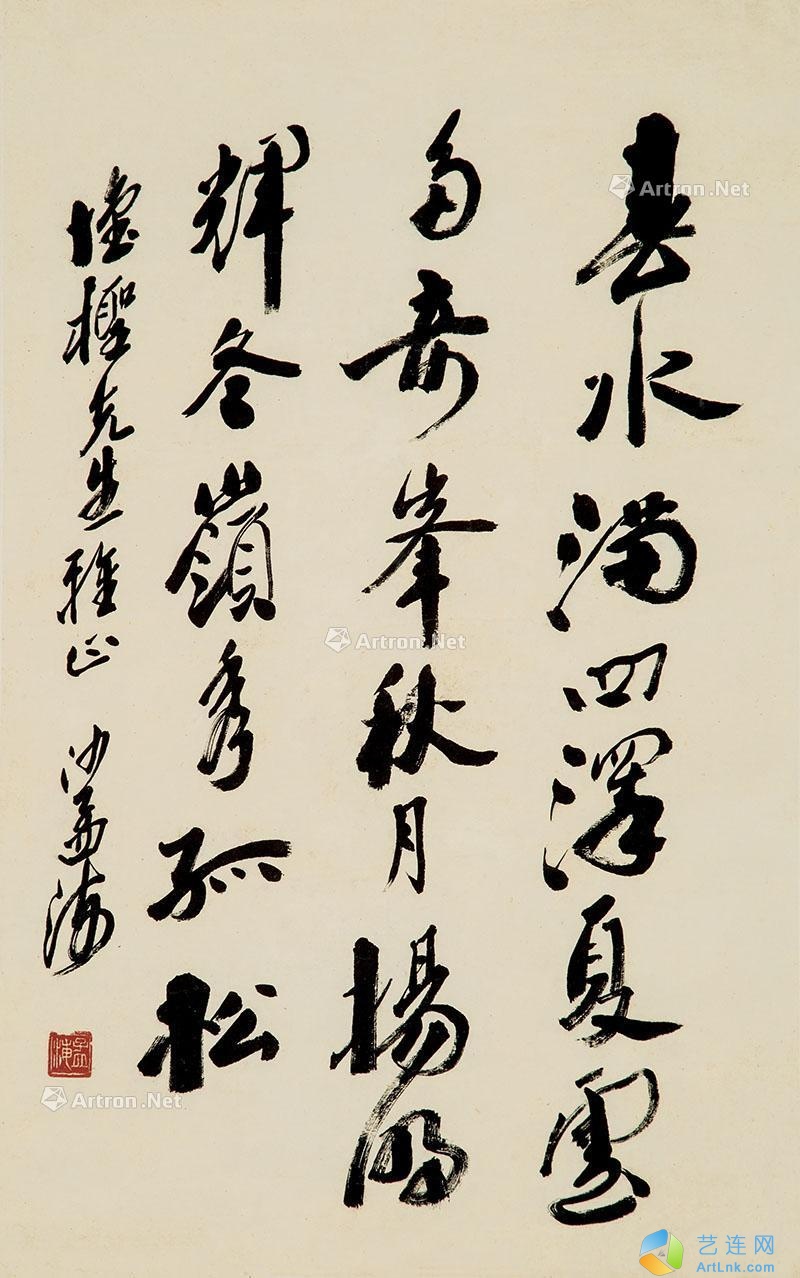 春水满四澤夏雲
多奇峯秋月揚明
輝冬嶺秀孤松
先生雅正 沙孟海
孟海
Artron.Net
Artron.Net
Artron.Net
艺连网
ArtLnk.com